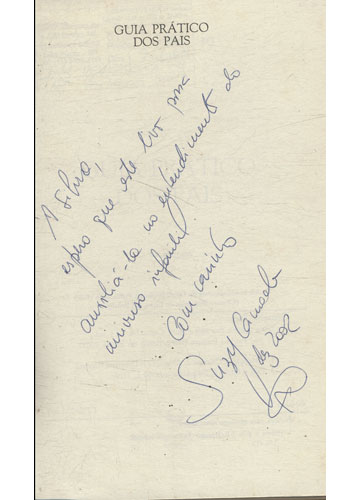 GUIA PRÁTICO
DOS PAIS
À Silvia,
espero que este livro possa
auxiliá-la no entendimento do
universo infantil
Com carinho
Suzy Camacho
dez 2002